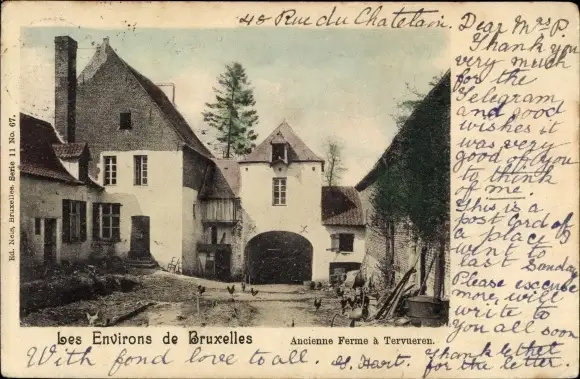 48 Rue du Chatelain.
Dear Mrs P.
Thank you
very much
for the
Telegram
and good
wishes it
was very
good of you
to think
of me.
This is a
post Card of
a place I
went to
last Sunday
Please excuse
more will
write to
you all soon
Thank
for the letter.
Ed. Nels, Bruxelles. Serie 11 No. 67.
Les Environs de Bruxelles
Ancienne Ferme à Tervueren.
With fond love to all. G. Hart.